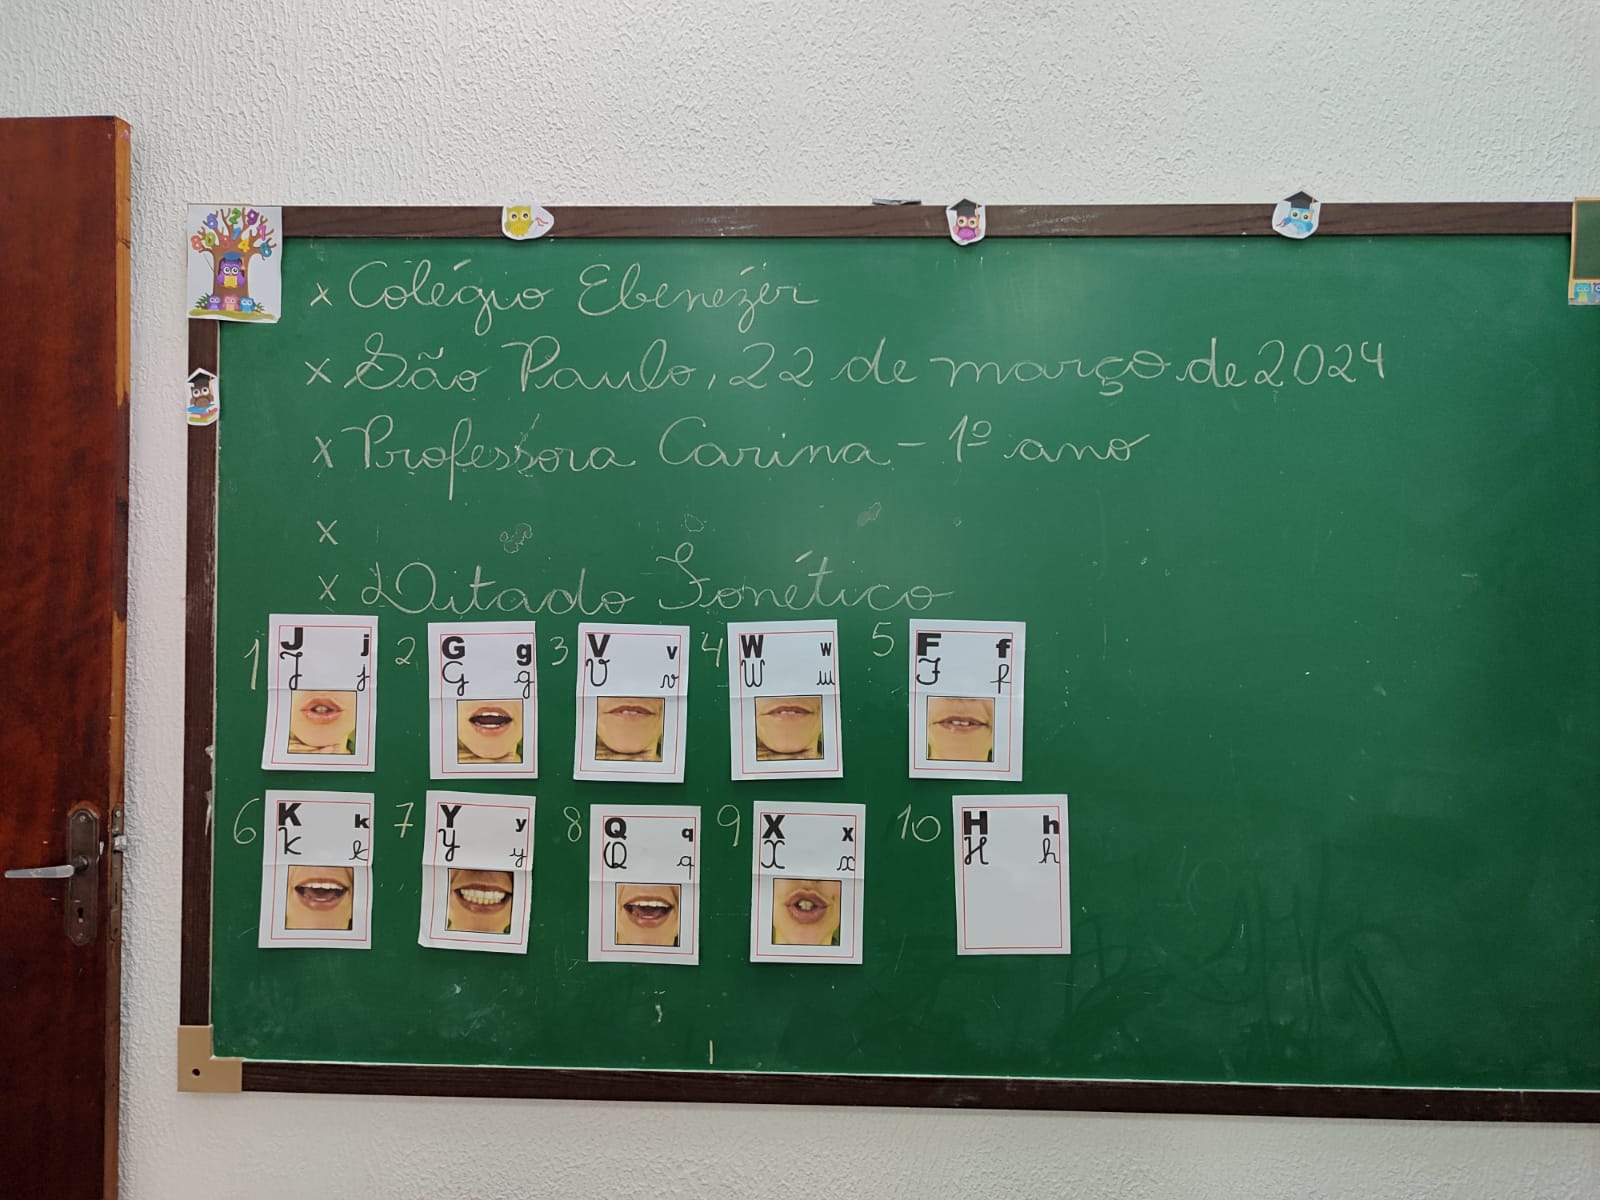 x Colégio Ebenézer
x São Paulo, 22 de março de 2024
x Professora Carina - 1º ano
x
x Ditado Fonético
1 J j 2 G g 3 V v 4 W w 5 F f
J j G g V v W w F f
6 K k 7 Y y 8 Q q 9 X x 10 H h
K k Y y Q q X x H h